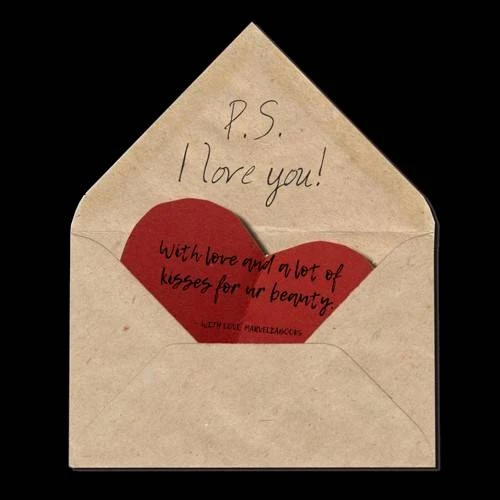 P.S.
I love you!
With love and a lot of
kisses for ur beauty.
- WITH LOVE, MARVELIABOOKS